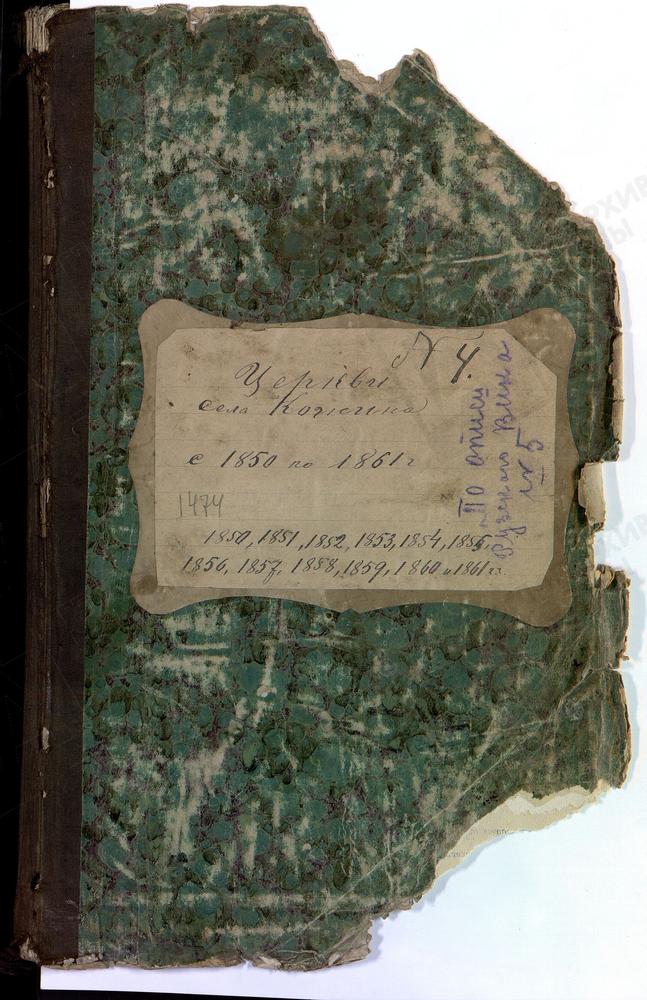 N 4.
Церкви
села Кожина
с 1850 по 1861 г
1474
1850, 1851, 1852, 1853, 1854, 1855,
1856, 1857, 1858, 1859, 1860 и 1861 гг.
По описи
Рузского
N 5